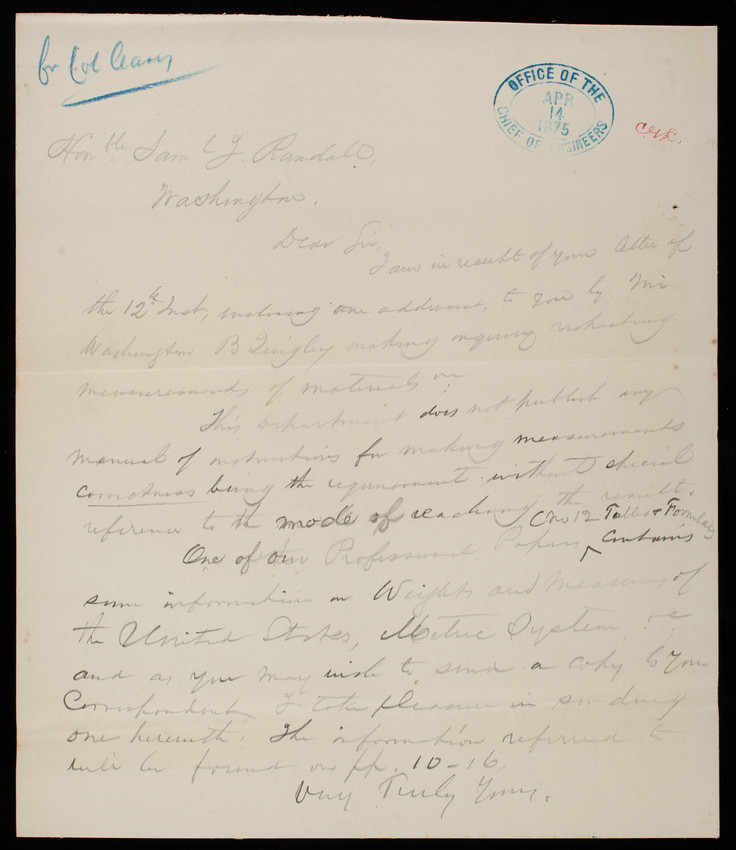 for Col Casey
OFFICE OF THE
APR
14
1875
CHIEF OF ENGINEERS
Hon'ble Sam'l J. Randall,
Washington.
Dear Sir,
I am in receipt of your letter of
the 12th Inst, inclosing one addressed to you by Mr
Washington B Quigley making inquiry respecting
measurements of materials &c
This Department does not publish any
manual of instructions for making measurements
correctness being the requirement without special
reference to the mode of reaching the result.
(No 12 Tables & Formulas)
One of our Professional Papers, ^ contains
some information on Weights and Measures of
the United States, Metric System, &c
and as you may wish to send a copy to your
Correspondent I take pleasure in sending
one herewith. The information referred to
will be found on pp. 10-16.
Very Truly Yours.